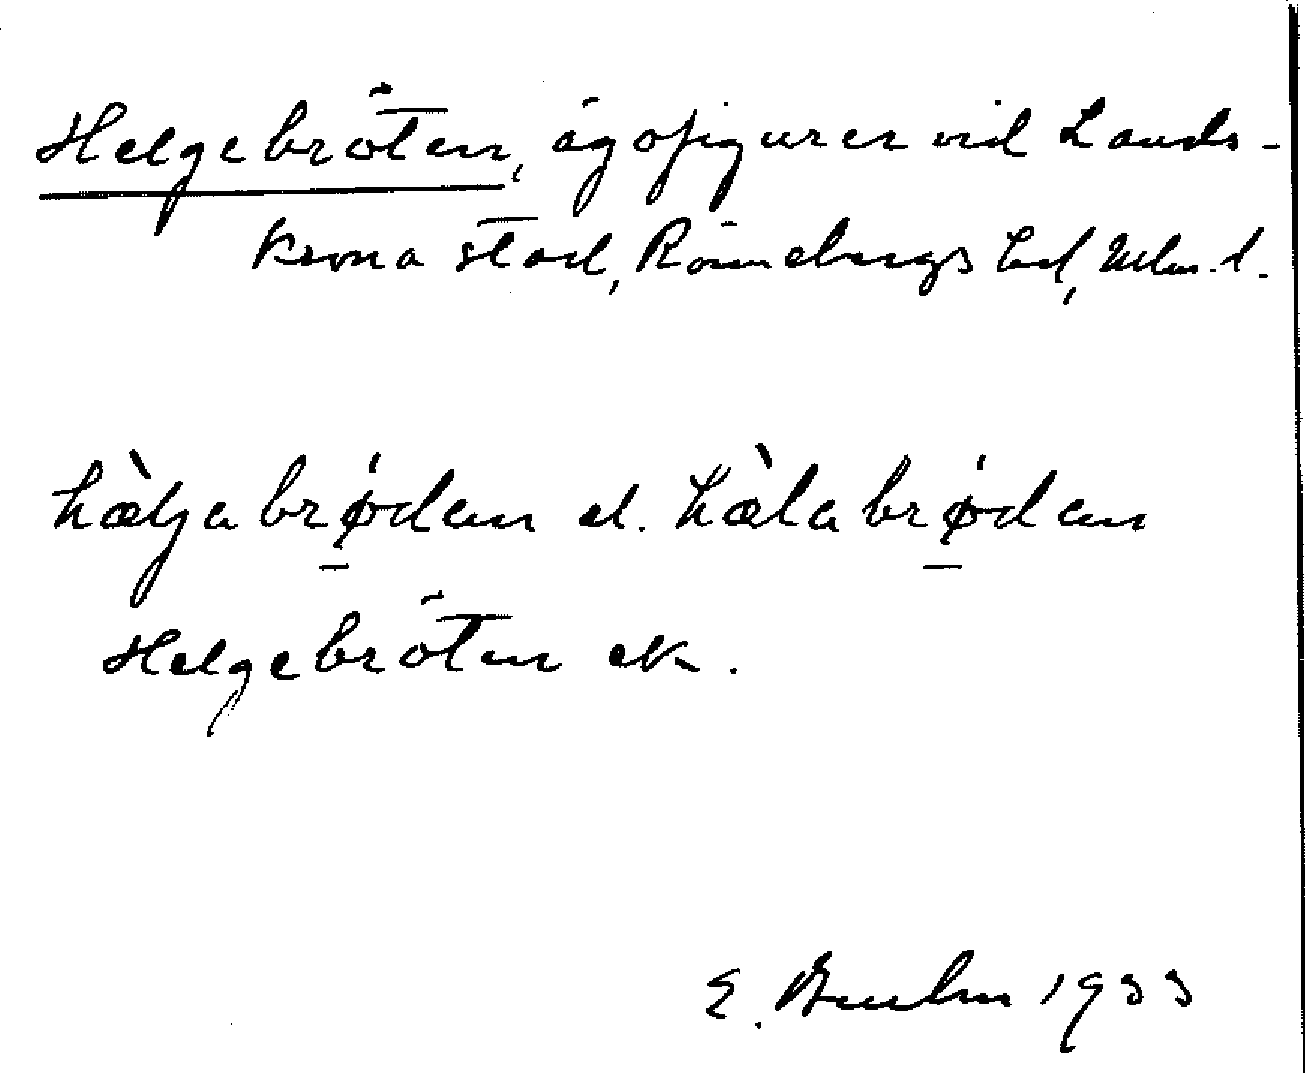 Helgebröten, ägofigurer vid Lands-
krona stad, Rönnebergs hd, Mlm. l.
hæ̀lgabrø̀dan el. hæ̀labrø̀dan
Helgebröten ek.
E. 1933